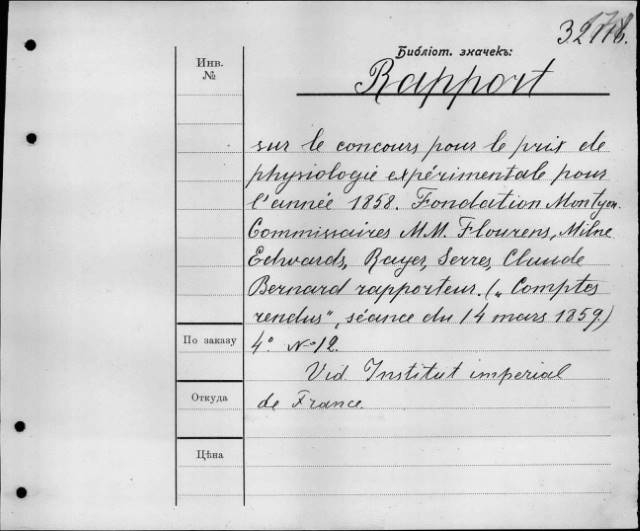 Библіот. значекъ:
Инв.
№
Rapport
sur le concours pour le prix de
physiologie expérimentale pour
l'année 1858. Fondation Montyon.
Commissaires MM. Flourens, Milne
Edwards, Rayer, Serres, Claude
Bernard rapporteur. („Comptes
rendus", séance du 14 mars 1859.)
По заказу
4° № 12.
Vid. Institut imperial
Откуда
de France.
Цѣна